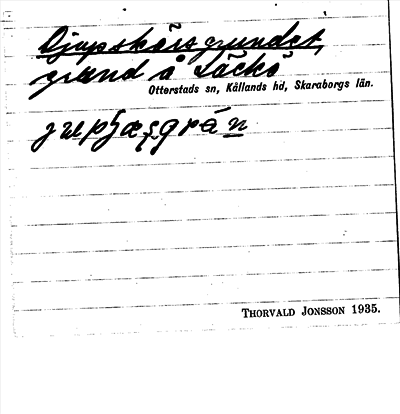 Djupskärsgrundet,
grund å Läckö
Otterstads sn, Kållands hd, Skaraborgs län.
THORVALD JONSSON 1935.